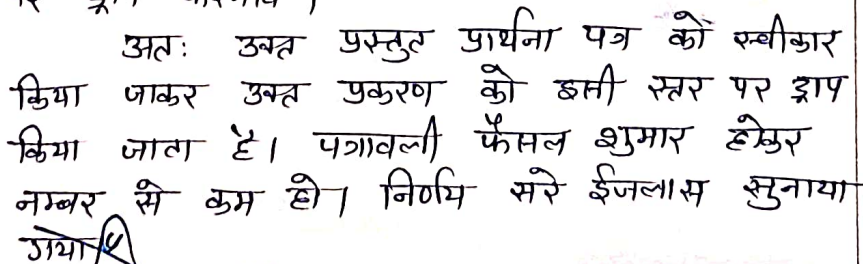 अतः उक्त प्रस्तुत प्रार्थना पत्र को स्वीकार
किया जाकर उक्त प्रकरण को इसी स्तर पर ड्राप
किया जाता है। पत्रावली फैसल शुमार होकर
नम्बर से कम हो। निर्णय सरे ईजलास सुनाया
गया